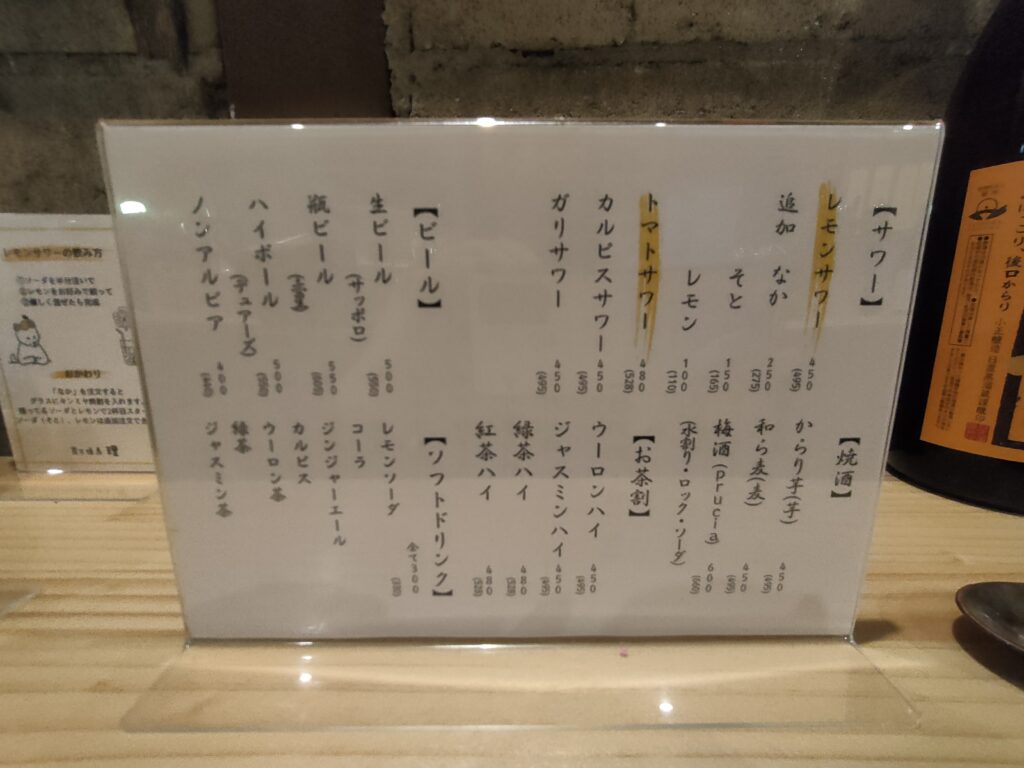 【サワー】
レモンサワー 450 (495)
追加 なか 250 (275)
そと 150 (165)
レモン 100 (110)
トマトサワー 480 (528)
カルピスサワー 450 (495)
ガリサワー 450 (495)
【ビール】
生ビール (サッポロ) 500 (550)
瓶ビール (赤星) 550 (605)
ハイボール (デュアーズ) 500 (550)
ノンアルビア 400 (440)
【焼酎】
からり芋(芋) 450 (495)
和ら麦(麦) 450 (495)
梅酒(prucia) 600 (660)
(水割り・ロック・ソーダ)
【お茶割】
ウーロンハイ 450 (495)
ジャスミンハイ 450 (495)
緑茶ハイ 480 (528)
紅茶ハイ 480 (528)
【ソフトドリンク】
全て300 (330)
レモンソーダ
コーラ
ジンジャーエール
カルピス
ウーロン茶
緑茶
ジャスミン茶
レモンサワーの飲み方
①ソーダを半分注いで
②レモンをお好みで絞って
③優しく混ぜたら完成
おかわり
「なか」を注文すると
グラスにキンミヤ焼酎を入れます。
残ってるソーダとレモンで2杯目スター
ソーダ(そと)、レモンは追加注文で
後口からり
小正醸造